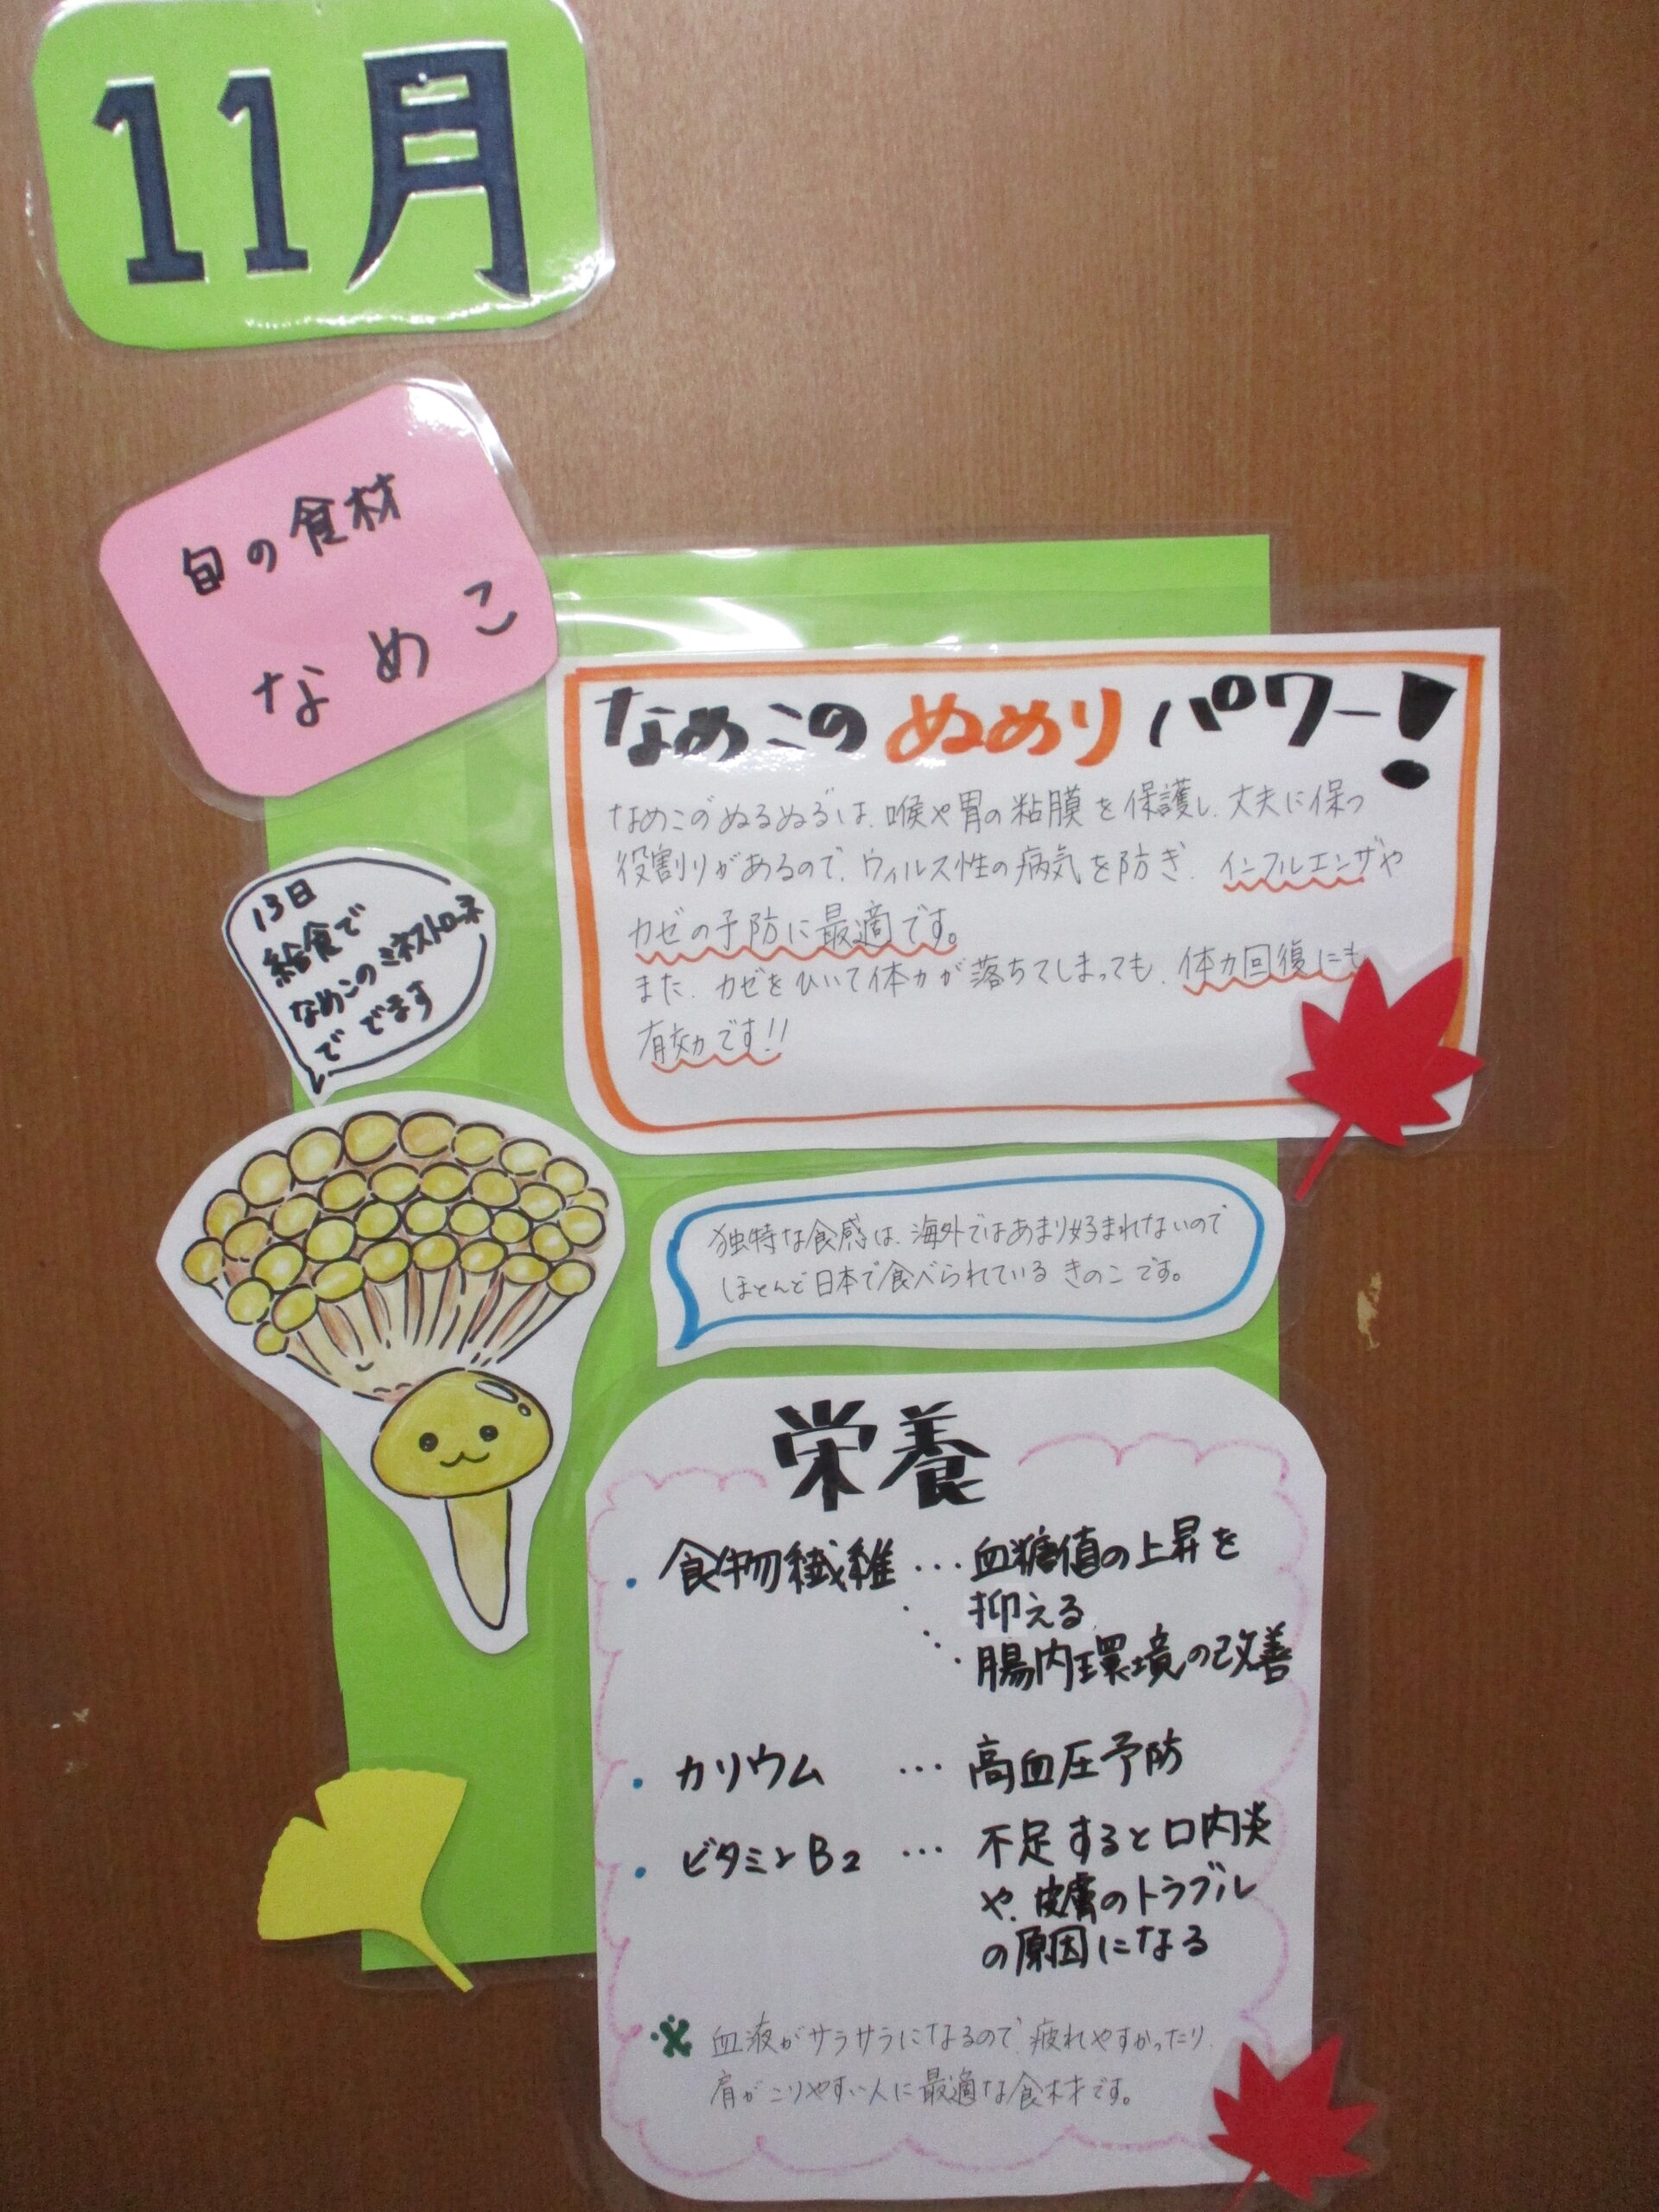 11月
旬の食材
なめこ
なめこのぬめりパワー!
なめこの"ぬるぬる"は、喉や胃の粘膜を保護し、丈夫に保つ
役割りがあるので、ウィルス性の病気を防ぎ、インフルエンザや
カゼの予防に最適です。
また、カゼをひいて体力が落ちてしまっても、体力回復にも
有効です!!
13日
給食で
なめこのミネストローネ
で でます
独特な食感は、海外ではあまり好まれないので
ほとんど日本で食べられているきのこです。
栄養
・食物繊維…血糖値の上昇を
抑える
腸内環境の改善
・カリウム …高血圧予防
・ビタミンB2 …不足すると口内炎
や、皮膚のトラブル
の原因になる
※ 血液がサラサラになるので、疲れやすかったり、
肩がこりやすい人に最適な食材です。